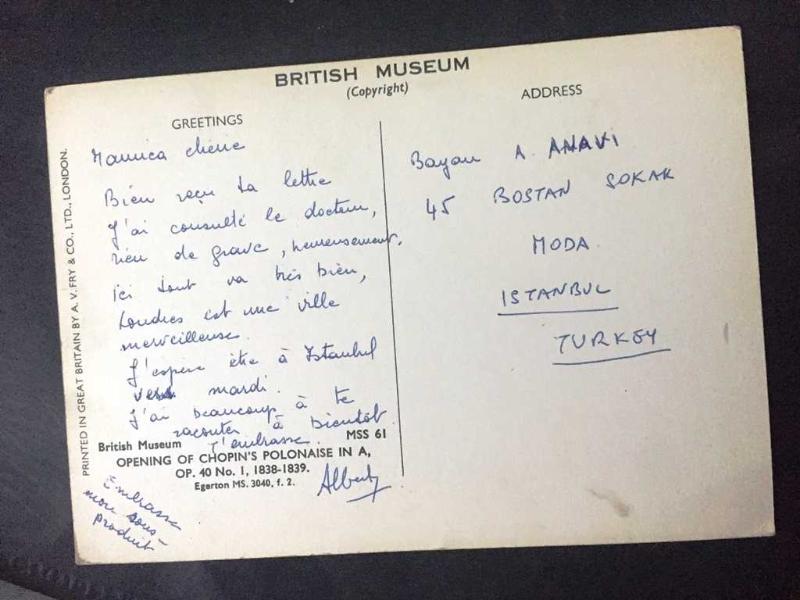 BRITISH MUSEUM
(Copyright)
GREETINGS
ADDRESS
PRINTED IN GREAT BRITAIN BY A. V. FRY & CO., LTD., LONDON.
chérie
Bien reçu ta lettre
J'ai consulté le docteur,
rien de grave, heureusement.
ici tout va très bien,
Londres est une ville
merveilleuse.
J'espère être à Istanbul
vers mardi.
J'ai beaucoup à te
raconter à bientôt
t'embrasse.
Albert
Embrasse
mon sous-
produit
Bayan A. ANAVI
45 BOSTAN SOKAK
MODA
ISTANBUL
TURKEY
British Museum MSS 61
OPENING OF CHOPIN'S POLONAISE IN A,
OP. 40 No. 1, 1838-1839.
Egerton MS. 3040, f. 2.